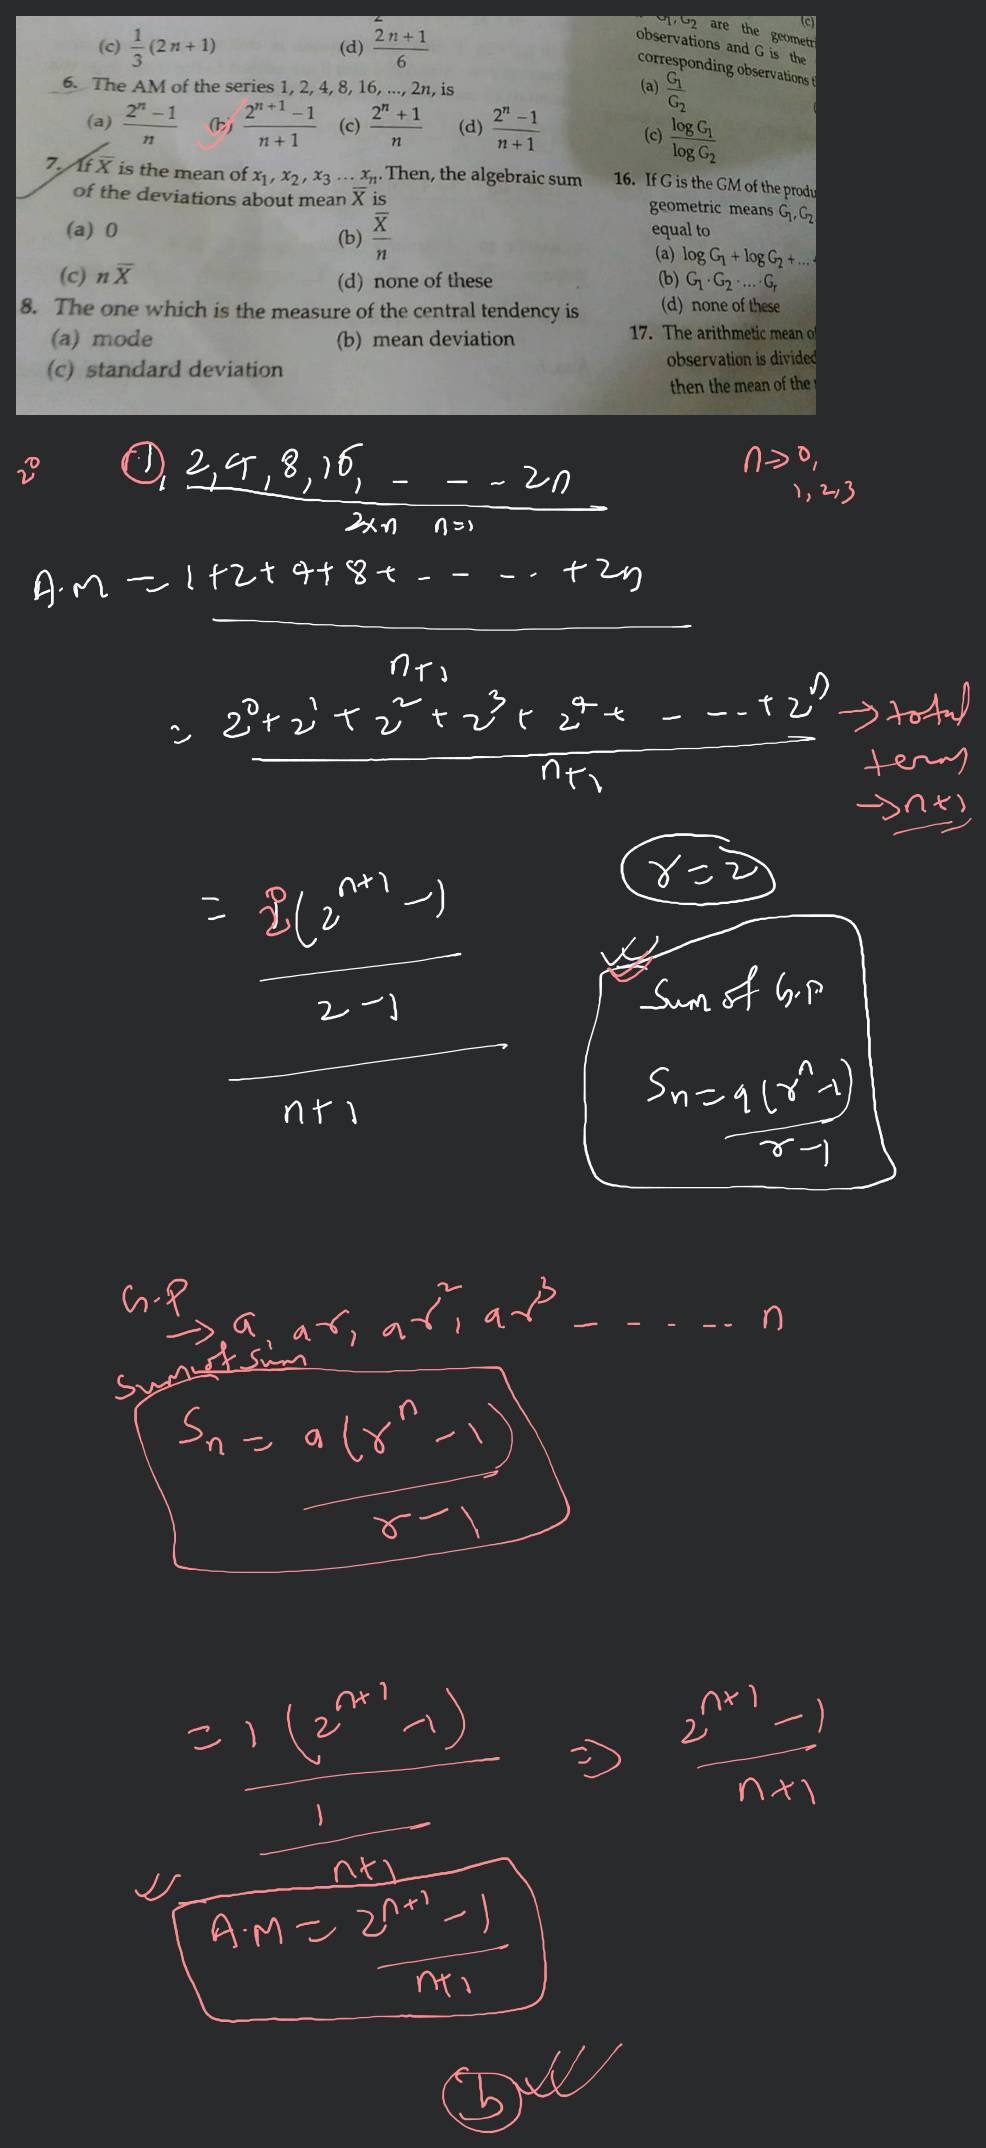 (c) 1/3 (2n + 1)
(d) 2n + 1 / 6
6. The AM of the series 1, 2, 4, 8, 16, ..., 2n, is
(a) 2^n − 1 / n (b) 2^(n+1) − 1 / n + 1 (c) 2^n + 1 / n (d) 2^n − 1 / n + 1
7. If X̅ is the mean of x₁, x₂, x₃ ... xₙ. Then, the algebraic sum
of the deviations about mean X̅ is
(a) 0
(b) X̅ / n
(c) n X̅
(d) none of these
8. The one which is the measure of the central tendency is
(a) mode
(b) mean deviation
(c) standard deviation
G₁, G₂ are the geometri
(c)
observations and G is the
corresponding observations
(a) G₁ / G₂
(c) log G₁ / log G₂
16. If G is the GM of the produ
geometric means G₁, G₂
equal to
(a) log G₁ + log G₂ + ...
(b) G₁ · G₂ · ... · Gᵣ
(d) none of these
17. The arithmetic mean o
observation is divided
then the mean of the
2⁰
1, 2, 4, 8, 16, - - - 2n
n → 0,
1, 2, 3
2×n n=1
A.M = 1+2+4+8+ - - - .. +2n
n+1
= 2⁰+2¹+2²+2³+2⁴+ - - -..+2ⁿ → total
terms
n+1
→ n+1
r=2
= 2⁰(2^(n+1) −1)
2−1
n+1
Sum of G.P
Sn = a(rⁿ−1)
r−1
G.P
→ a, ar, ar², ar³ - - - - -.. n
Sum of sum
Sn = a(rⁿ − 1)
r−1
= 1(2^(n+1) −1) ⇒ 2^(n+1) − 1
1
n+1
n+1
A.M = 2^(n+1) − 1
n+1
b